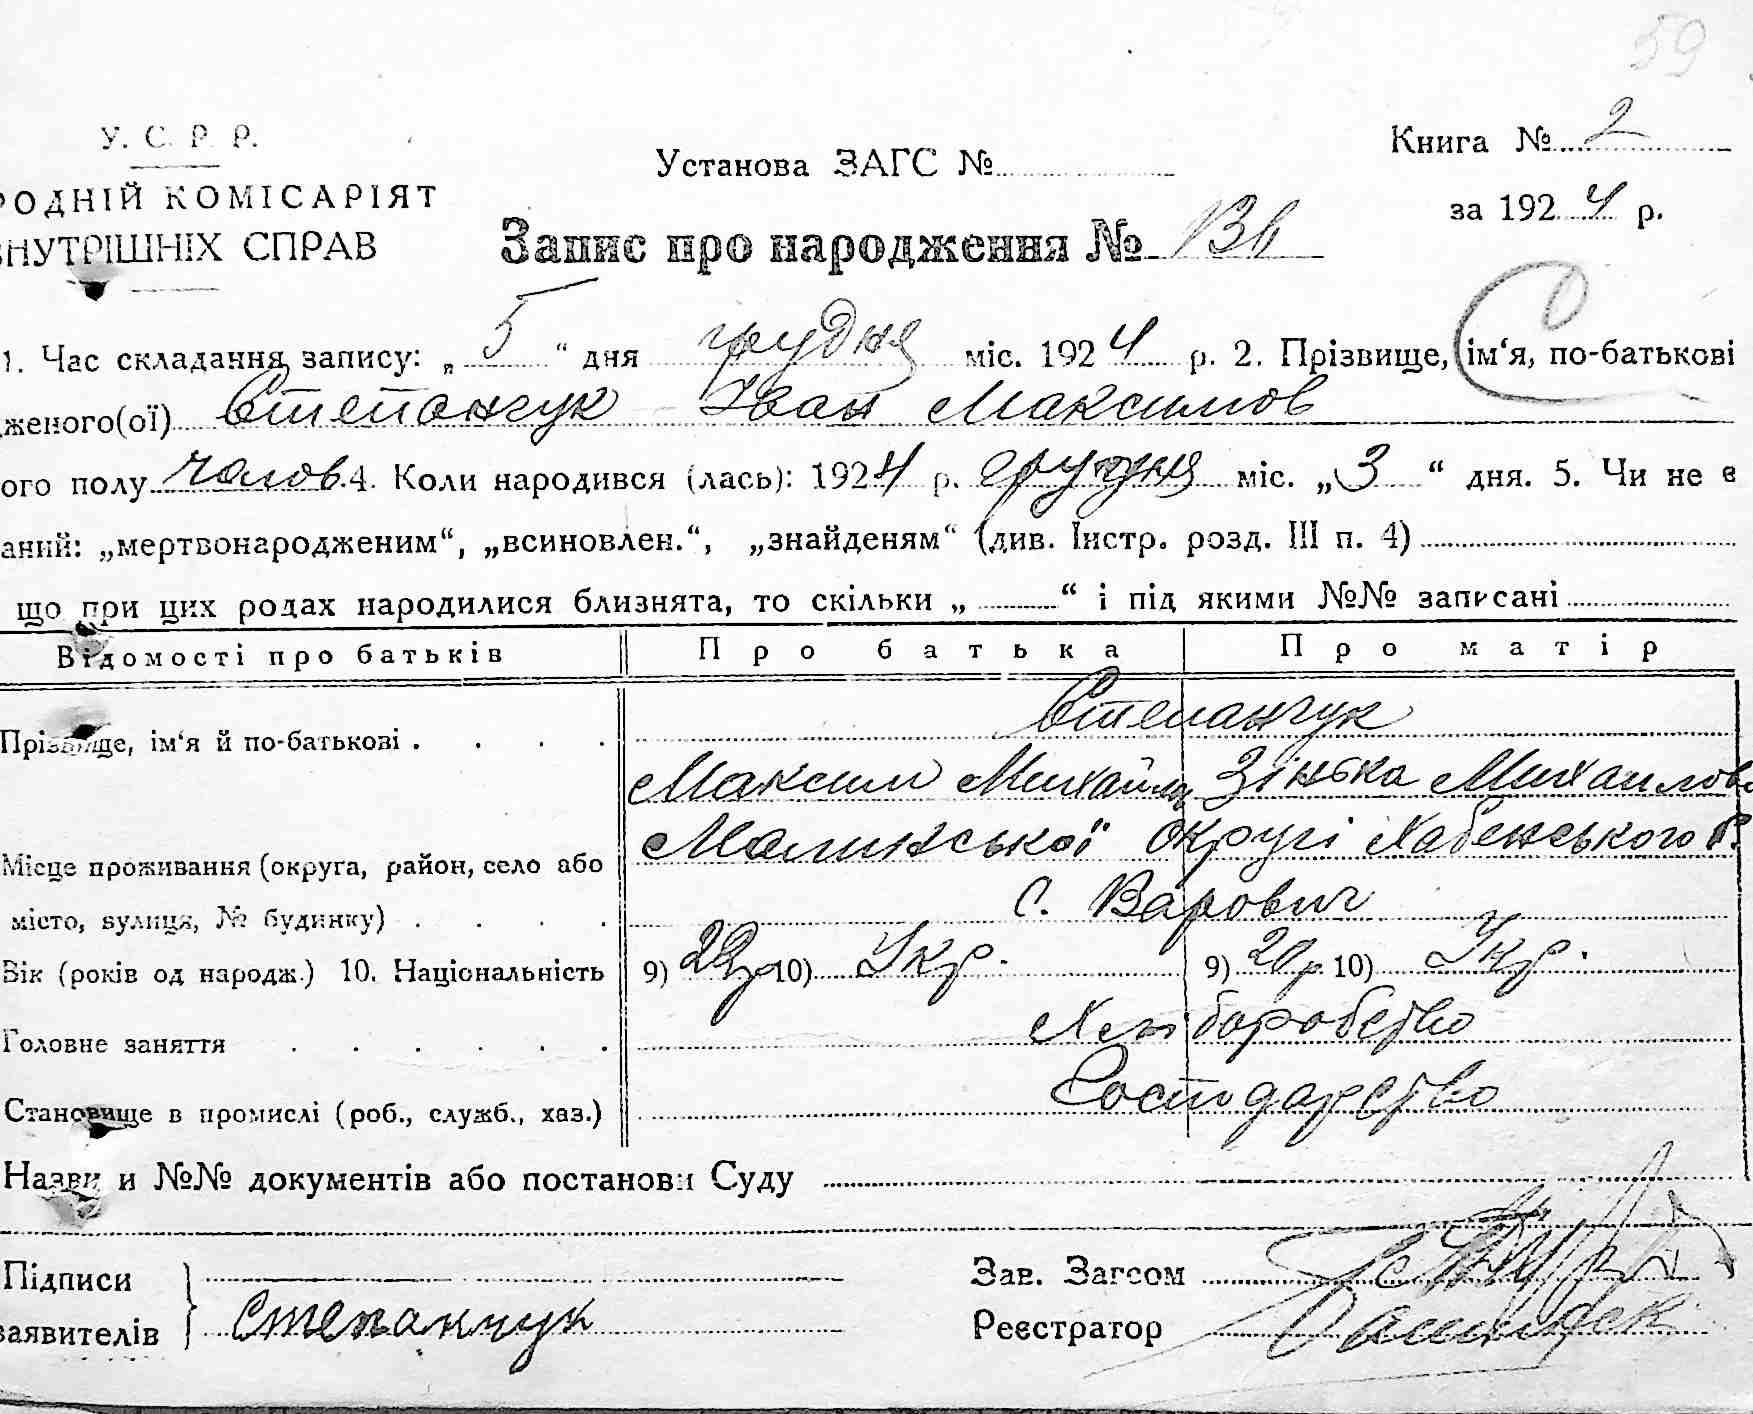 59
У. С. Р. Р.
РОДНІЙ КОМІСАРІЯТ
ВНУТРІШНІХ СПРАВ
Установа ЗАГС №
Книга № 2
за 1924 р.
Запис про народження №
1. Час складання запису: „ 5 “ дня грудня міс. 1924 р. 2. Прізвище, ім‘я, по-батькові
женого(ої) Степанчук Іван Максимов
ого полу чолов. 4. Коли народився (лась): 1924 р. грудня міс. „ 3 “ дня. 5. Чи не є
аний: „мертвонародженим“, „всиновлен.“, „знайденям“ (див. Інстр. розд. III п. 4)
що при цих родах народилися близнята, то скільки „ “ і під якими №№ записані
Відомості про батьків Про батька Про матір
Прізвище, ім‘я й по-батькові . . . . Степанчук
Максим Михайлів Зінька Михаилов
Малинської округі Хабенського р.
Місце проживання (округа, район, село або
місто, вулиця, № будинку) . . . . с. Варович
Вік (років од народж.) 10. Національність 9) 10) Укр. 9) 20р. 10) Укр.
Головне заняття . . . . . . Хліборобство
Становище в промислі (роб., служб., хаз.) Господарство
Назви и №№ документів або постанови Суду
Підписи
заявителів Степанчук
Зав. Загсом
Реєстратор